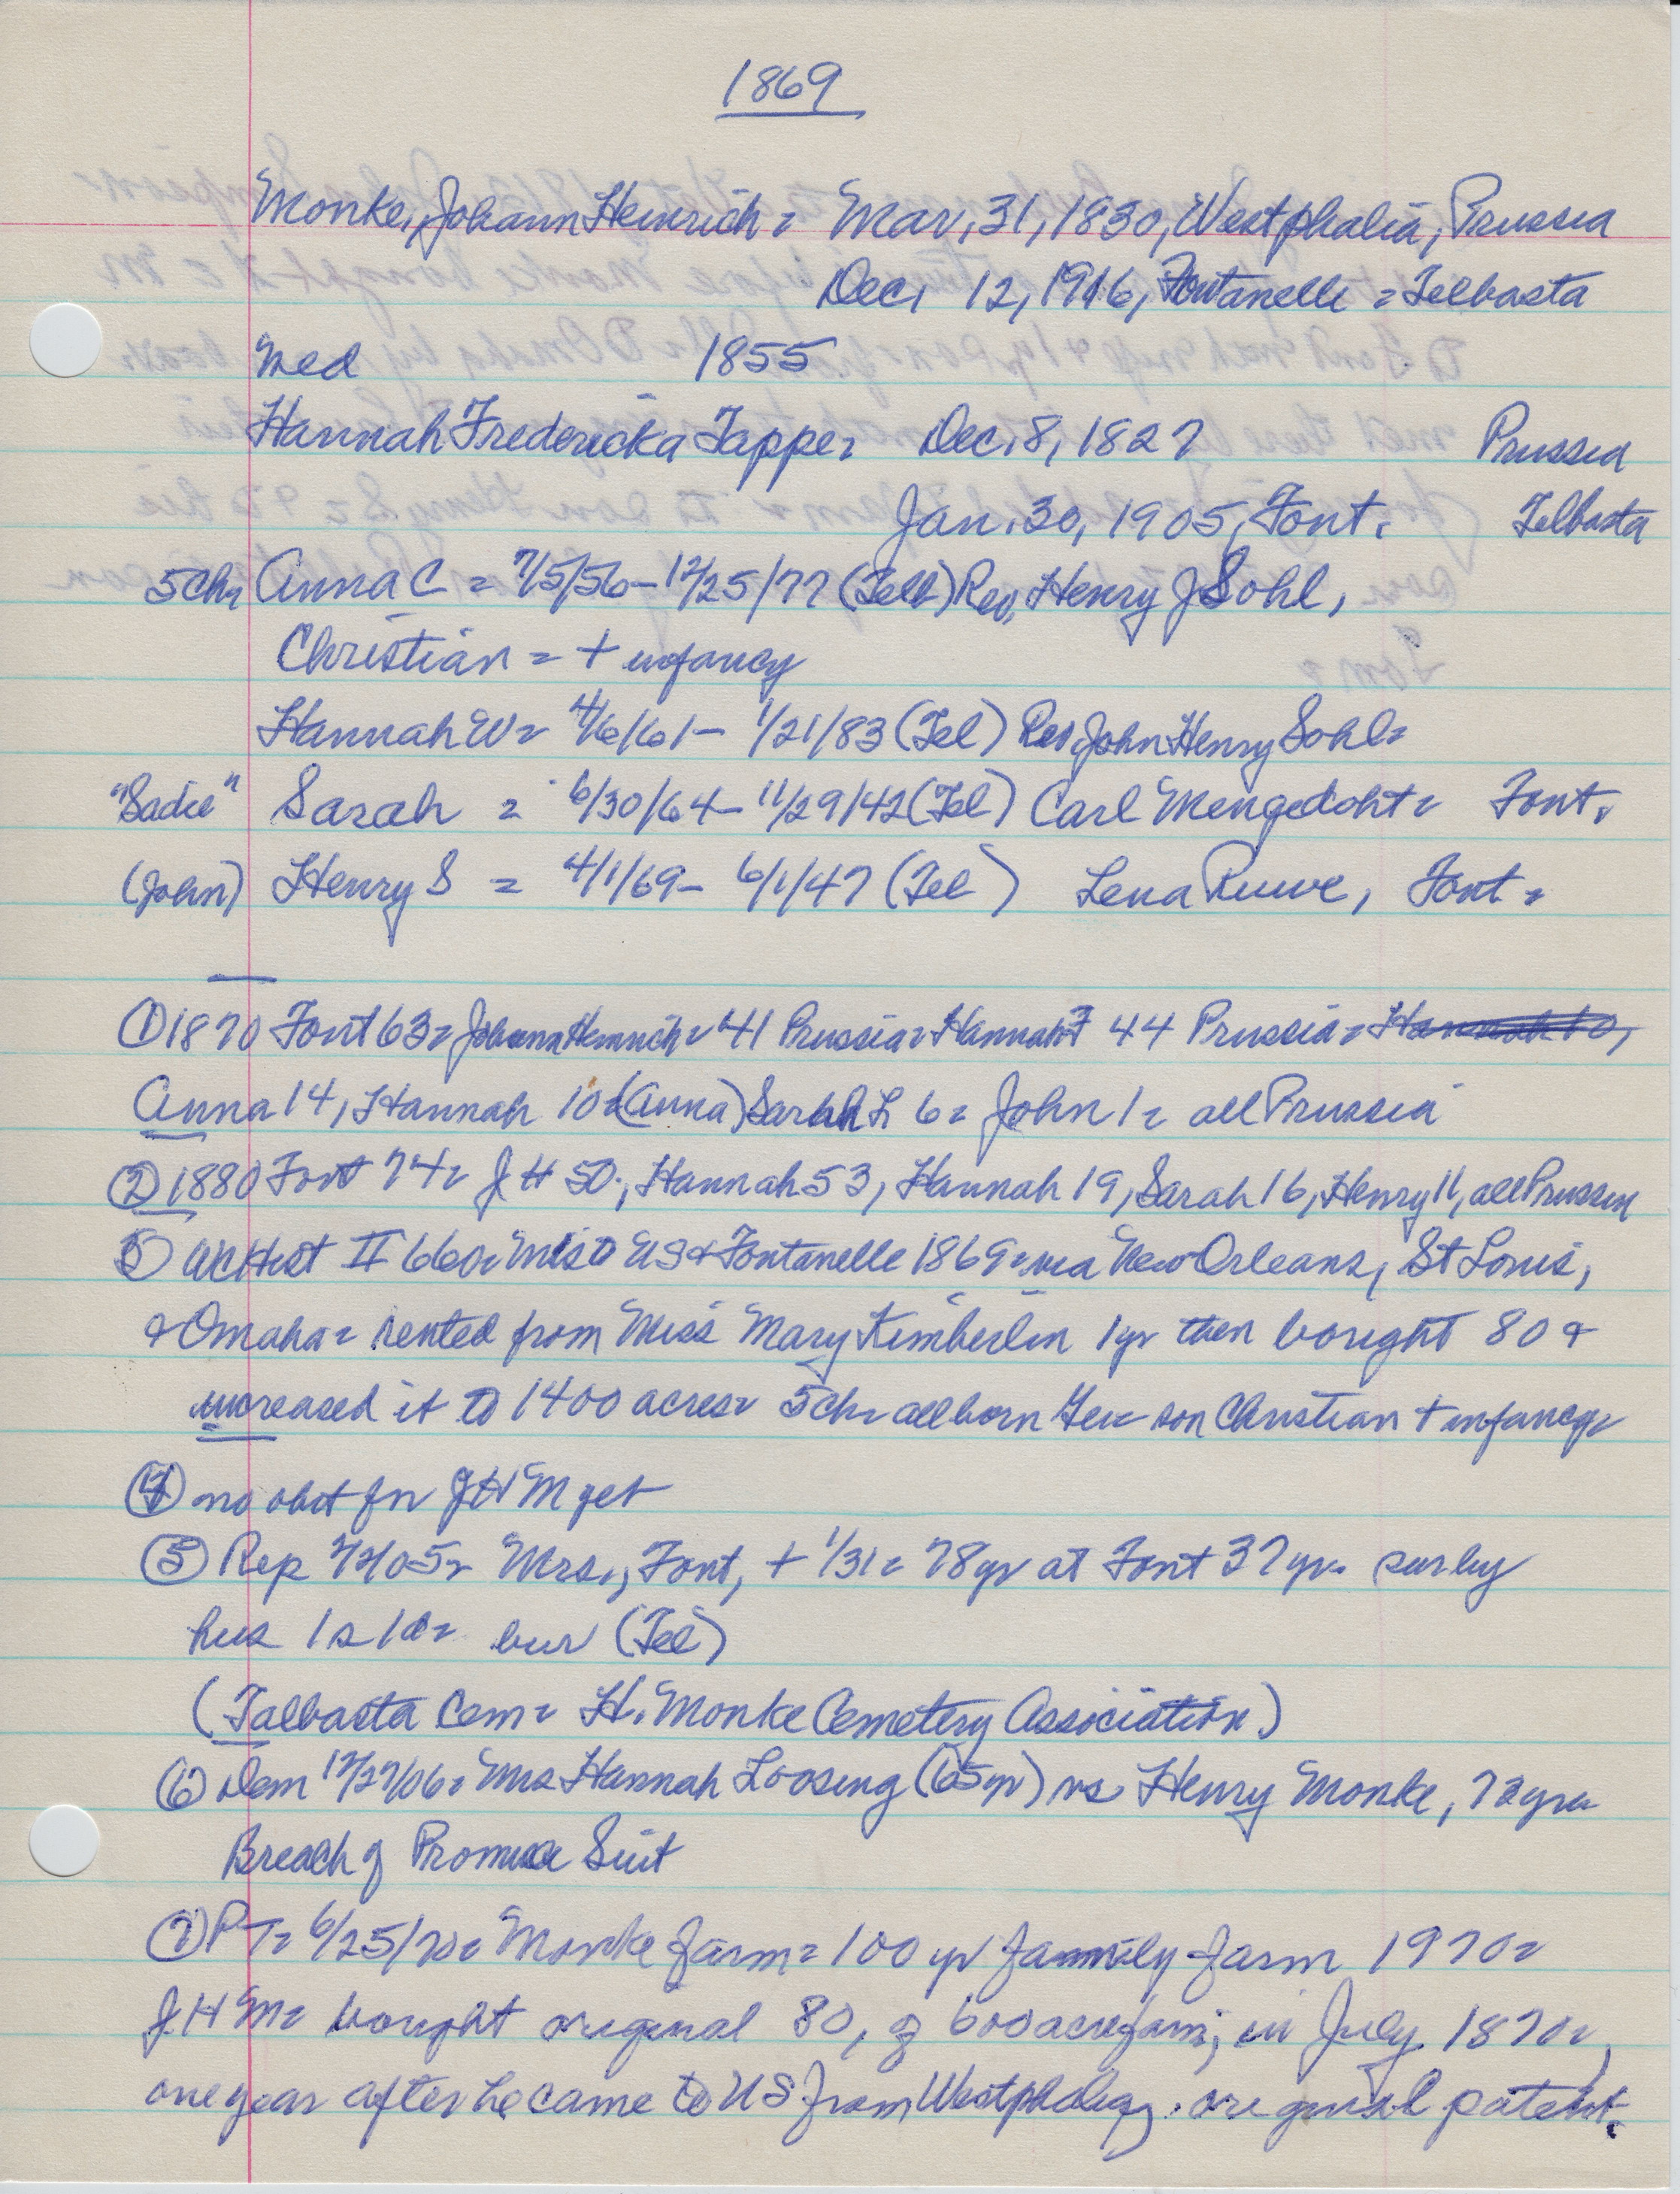 1869
Monke, Johann Heinrich = Mar, 31, 1830, Westphalia, Prussia
Dec, 12, 1916, Fontanelle = Telbasta
Med 1855
Hannah Fredericka Tapper = Dec. 8, 1827 Prussia
Jan. 30, 1905, Font. Telbasta
5 Ch = Anna C = 7/5/56 - 12/25/77 (Telb) Rev, Henry J Sohl,
Christian = + infancy
Hannah W = 4/6/61 - 1/21/83 (Tel) Rev John Henry Sohl =
"Sadie" Sarah = 6/30/64 - 11/29/42 (Tel) Carl Mengedoht = Font.
(John) Henry S = 4/1/69 - 6/1/47 (Tel) Lena Ruwe, Font =
① 1870 Font 63 = Johann Heinrich = 41 Prussia = Hannah F 44 Prussia = Hannah 10,
Anna 14, Hannah 10 = (Anna) Sarah L 6 = John 1 = all Prussia
② 1880 Font 74 = J H 50, Hannah 53, Hannah 19, Sarah 16, Henry 11, all Prussia
③ WCHist II 660 = M to US & Fontanelle 1869 = via New Orleans, St Louis,
& Omaha = rented from Miss Mary Kimberlin 1 yr then bought 80 &
increased it to 1400 acres = 5 ch = all born Ger = son Christian + infancy =
④ no obit for J H M yet
⑤ Rep 2/2/05 = Mrs., Font, + 1/31 = 78 yr at Font 37 yr = sur by
hus 1 s 1 d = bur (Tel)
(Talbasta Cem = H. Monke Cemetery Association.)
⑥ Dem 12/27/06 = Mrs Hannah Loosing (65 yr) vs Henry Monke, 72 yrs =
Breach of Promise Suit
⑦ PT = 6/25/70 = Monke farm = 100 yr family farm 1970 =
J H M = bought original 80, of 600 acre farm, in July 1870 =,
one year after he came to US from Westphalia, original patent.